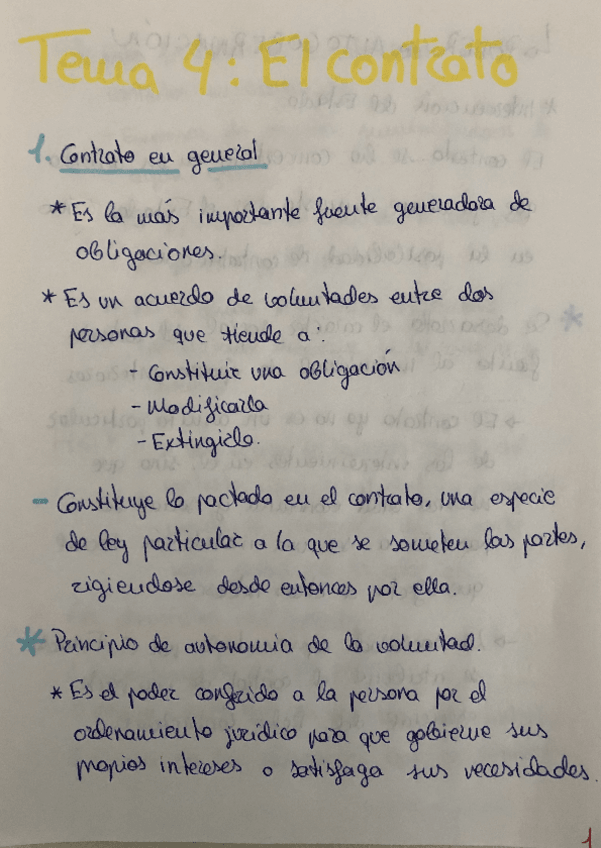 Tema 4: El contrato
1. Contrato en general
* Es la más importante fuente generadora de
obligaciones.
* Es un acuerdo de voluntades entre dos
personas que tiende a:
- Constituir una obligación
- Modificarla
- Extinguirla.
- Constituye lo pactado en el contrato, una especie
de ley particular a la que se someten las partes,
rigiendose desde entonces por ella.
* Principio de autonomia de la voluntad.
* Es el poder conferido a la persona por el
ordenamiento jurídico para que gobierne sus
propios intereses o satisfaga sus necesidades.
1